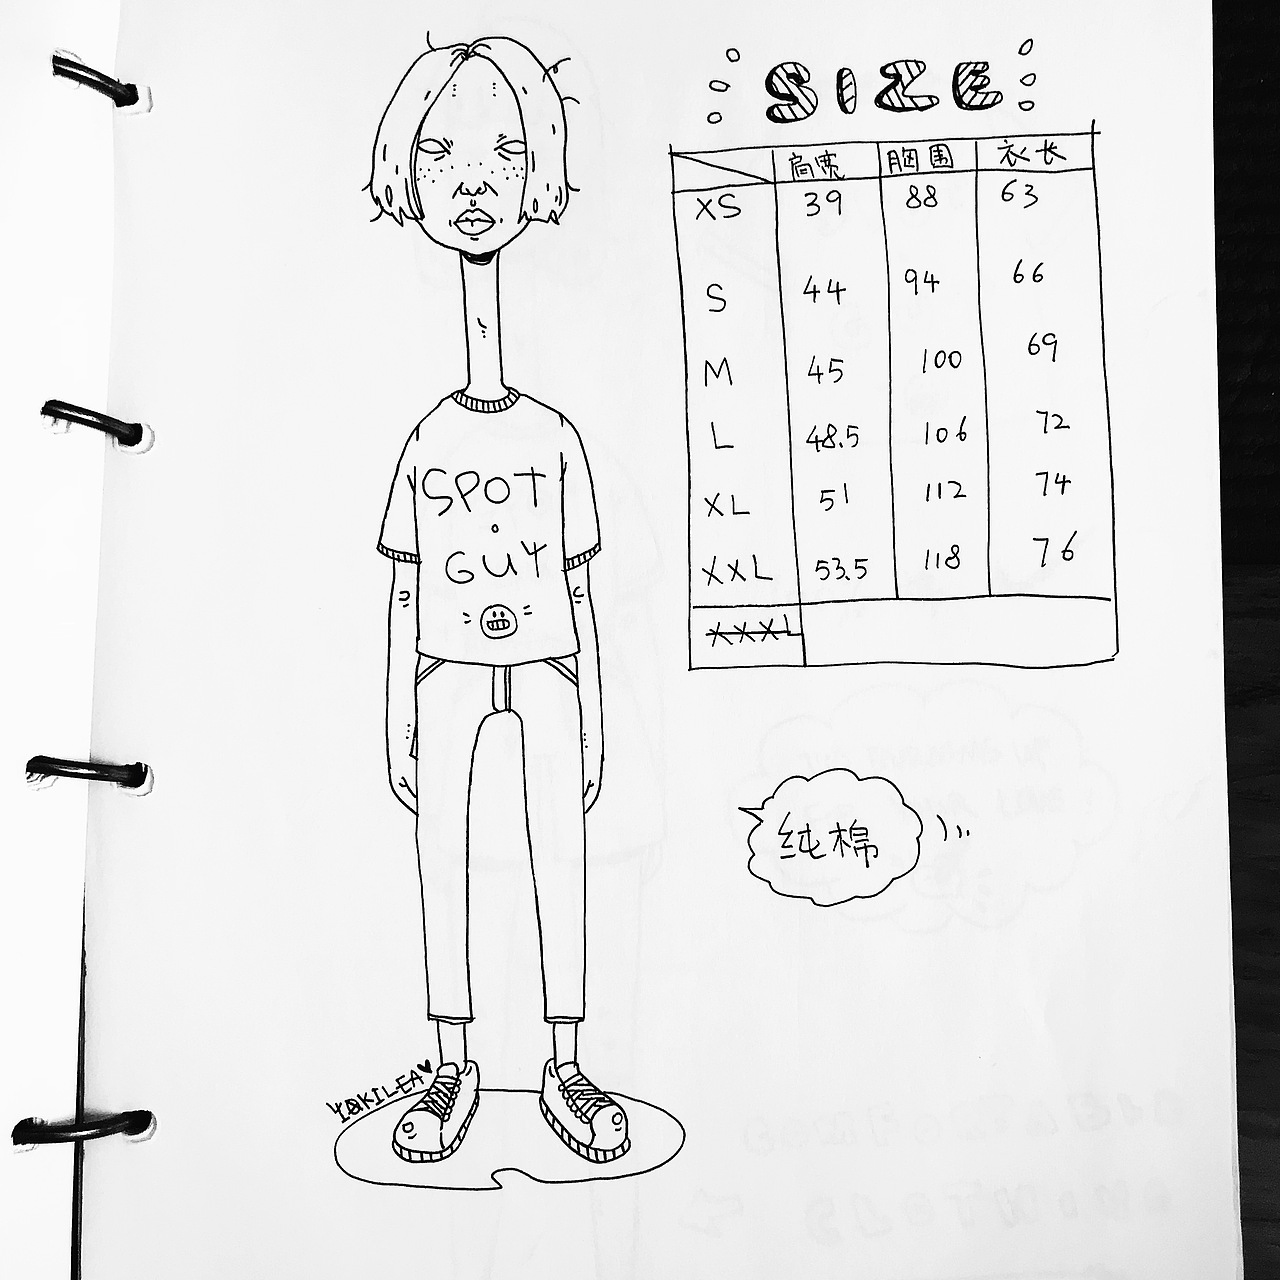 SIZE
肩宽 胸围 衣长
XS 39 88 63
S 44 94 66
M 45 100 69
L 48.5 106 72
XL 51 112 74
XXL 53.5 118 76
XXXL
SPOT
GUY
纯棉
YOKILEA